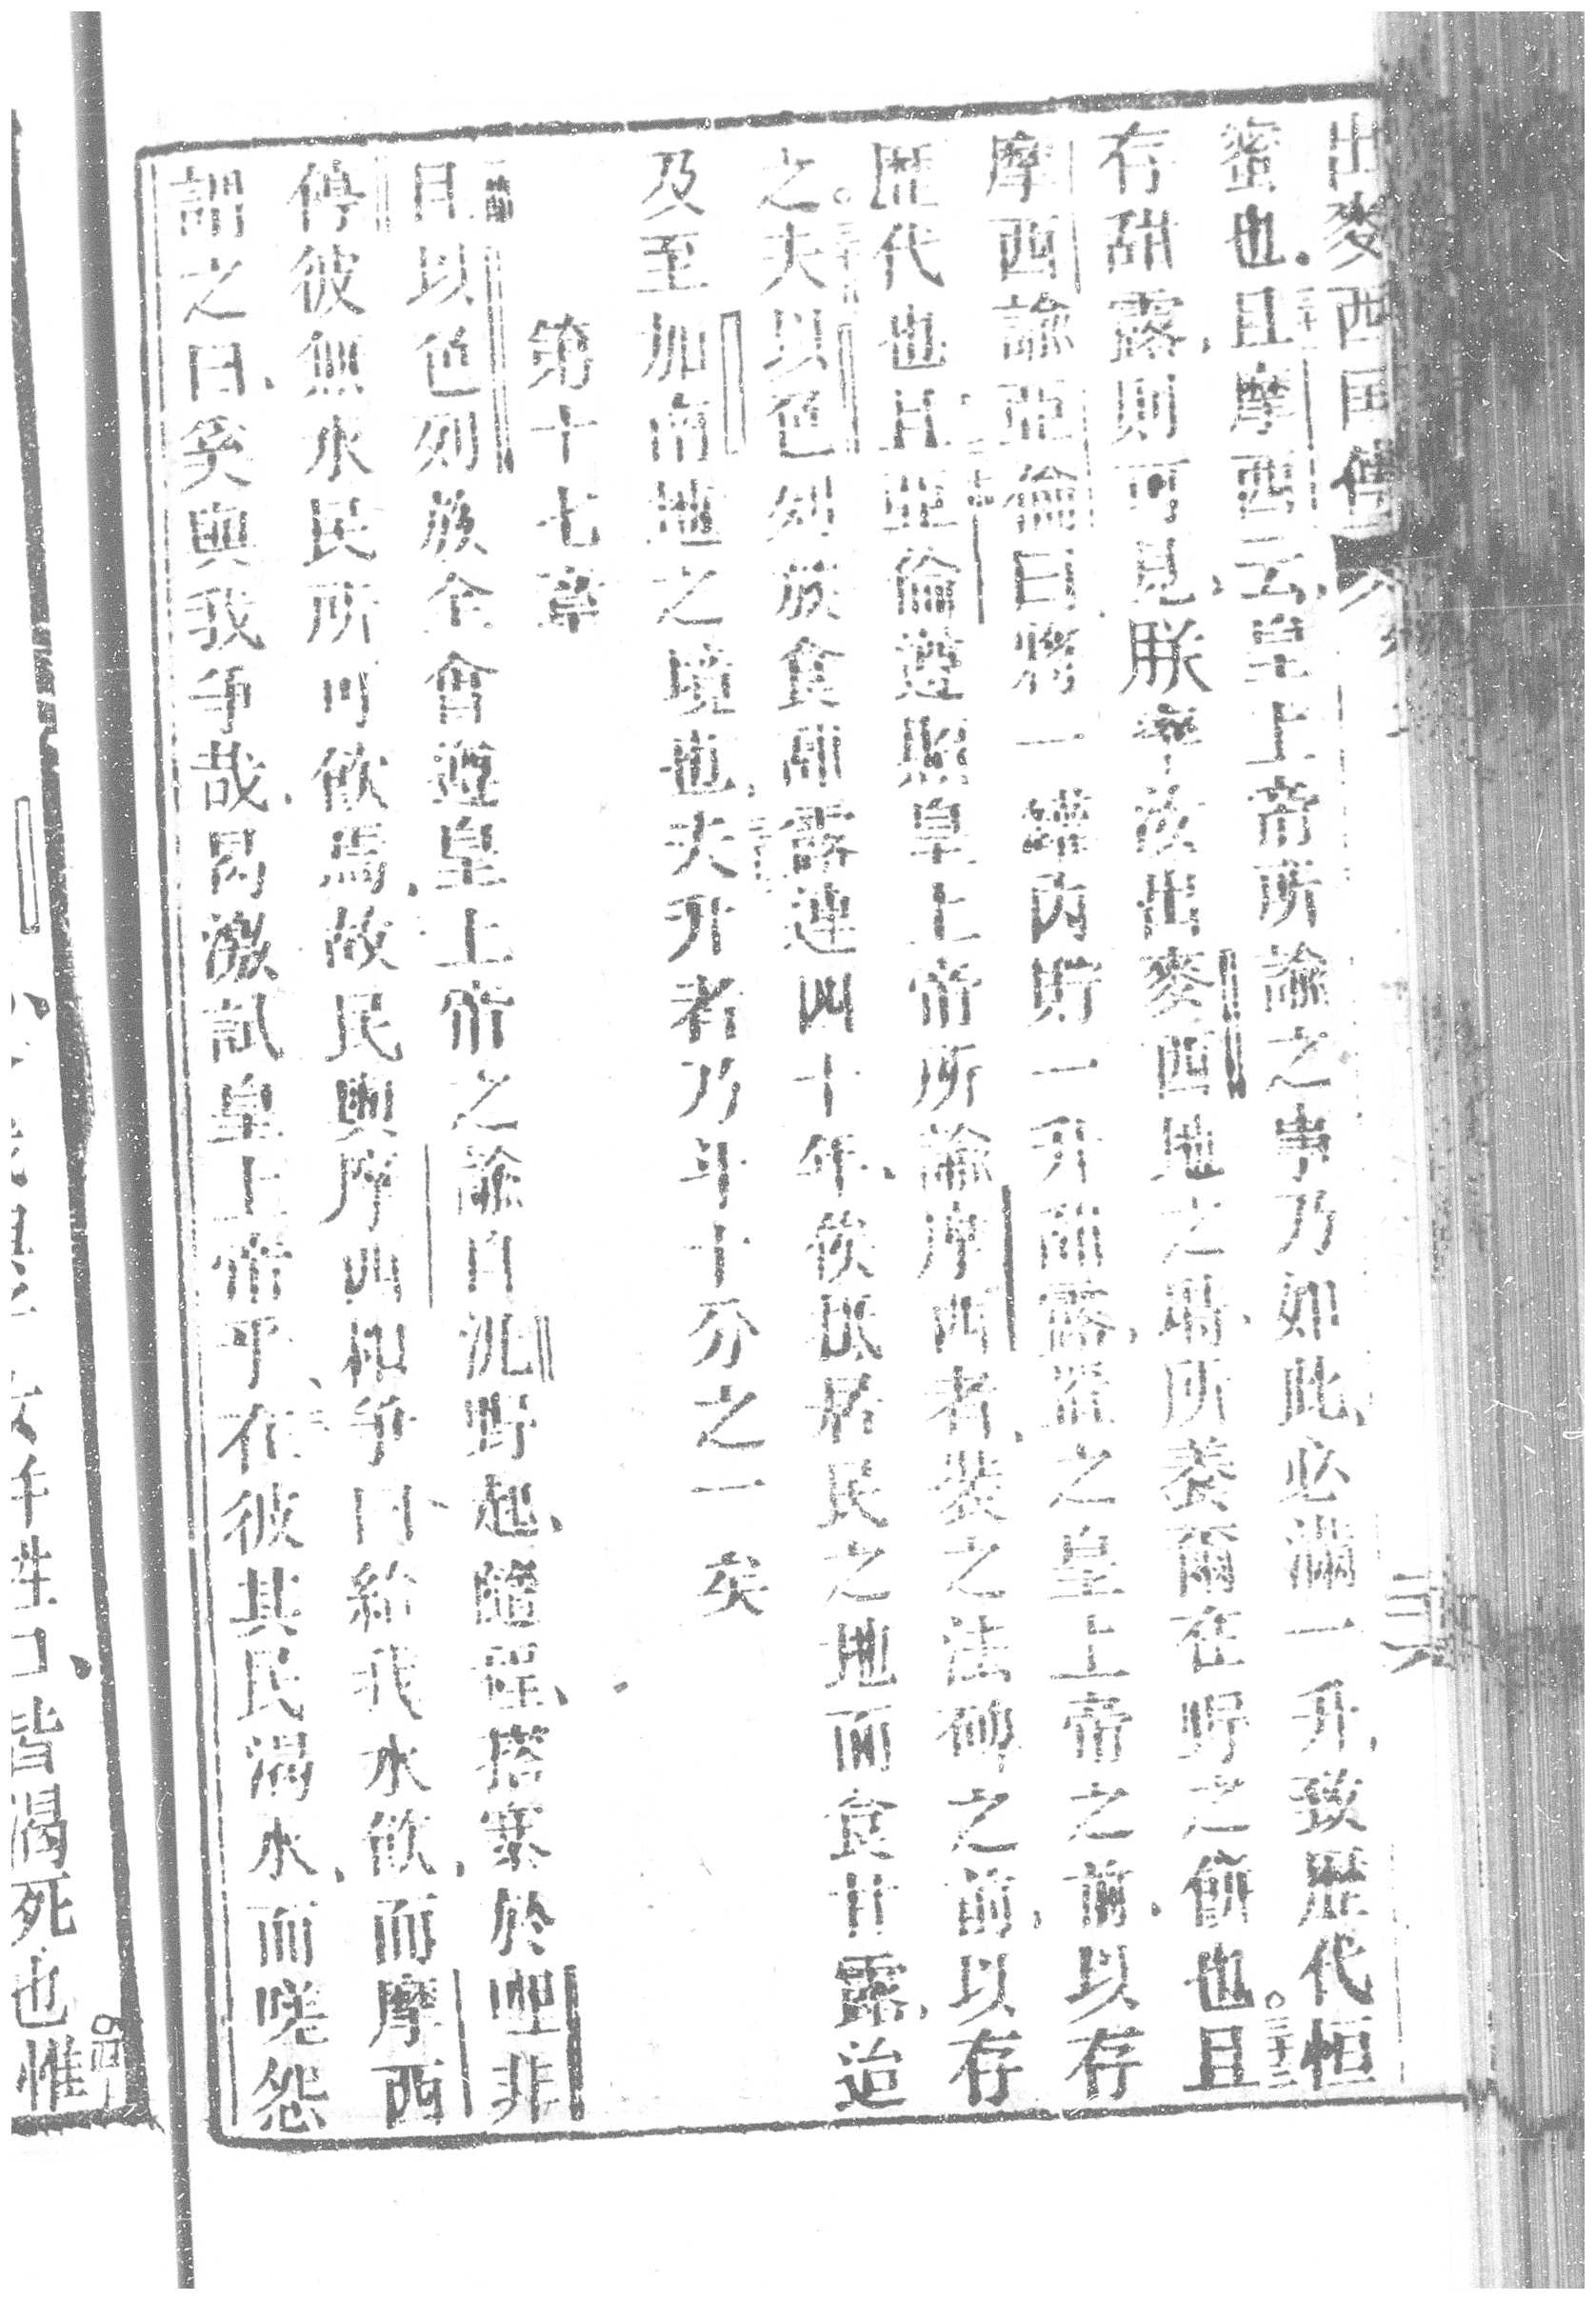 出麥西國傳
三六
蜜也、三二且摩西云、皇上帝所諭之事乃如此、必滿一升、致歷代恒
存甜露、則可見朕率汝出麥西地之場、所養爾在野之餅也。三三且
摩西諭亞倫曰、將一罐內貯一升甜露、置之皇上帝之前、以存
歷代也、三四且亞倫遵照皇上帝所諭摩西者、裝之法碑之前、以存
之。三五夫以色列族食甜露連四十年、俟抵居民之地而食甘露、迨
及至加南地之境也、三六夫升者乃斗十分之一矣
第十七章
一且以色列族全會遵皇上帝之諭、自汎野起、隨程、搭寨於哩非
停、彼無水民所可飲焉、二故民與摩西相爭曰、給我水飲、而摩西
謂之曰、奚與我爭哉、曷激試皇上帝乎、三在彼其民渴水、而嗟怨
牲口、皆渴死也、惟